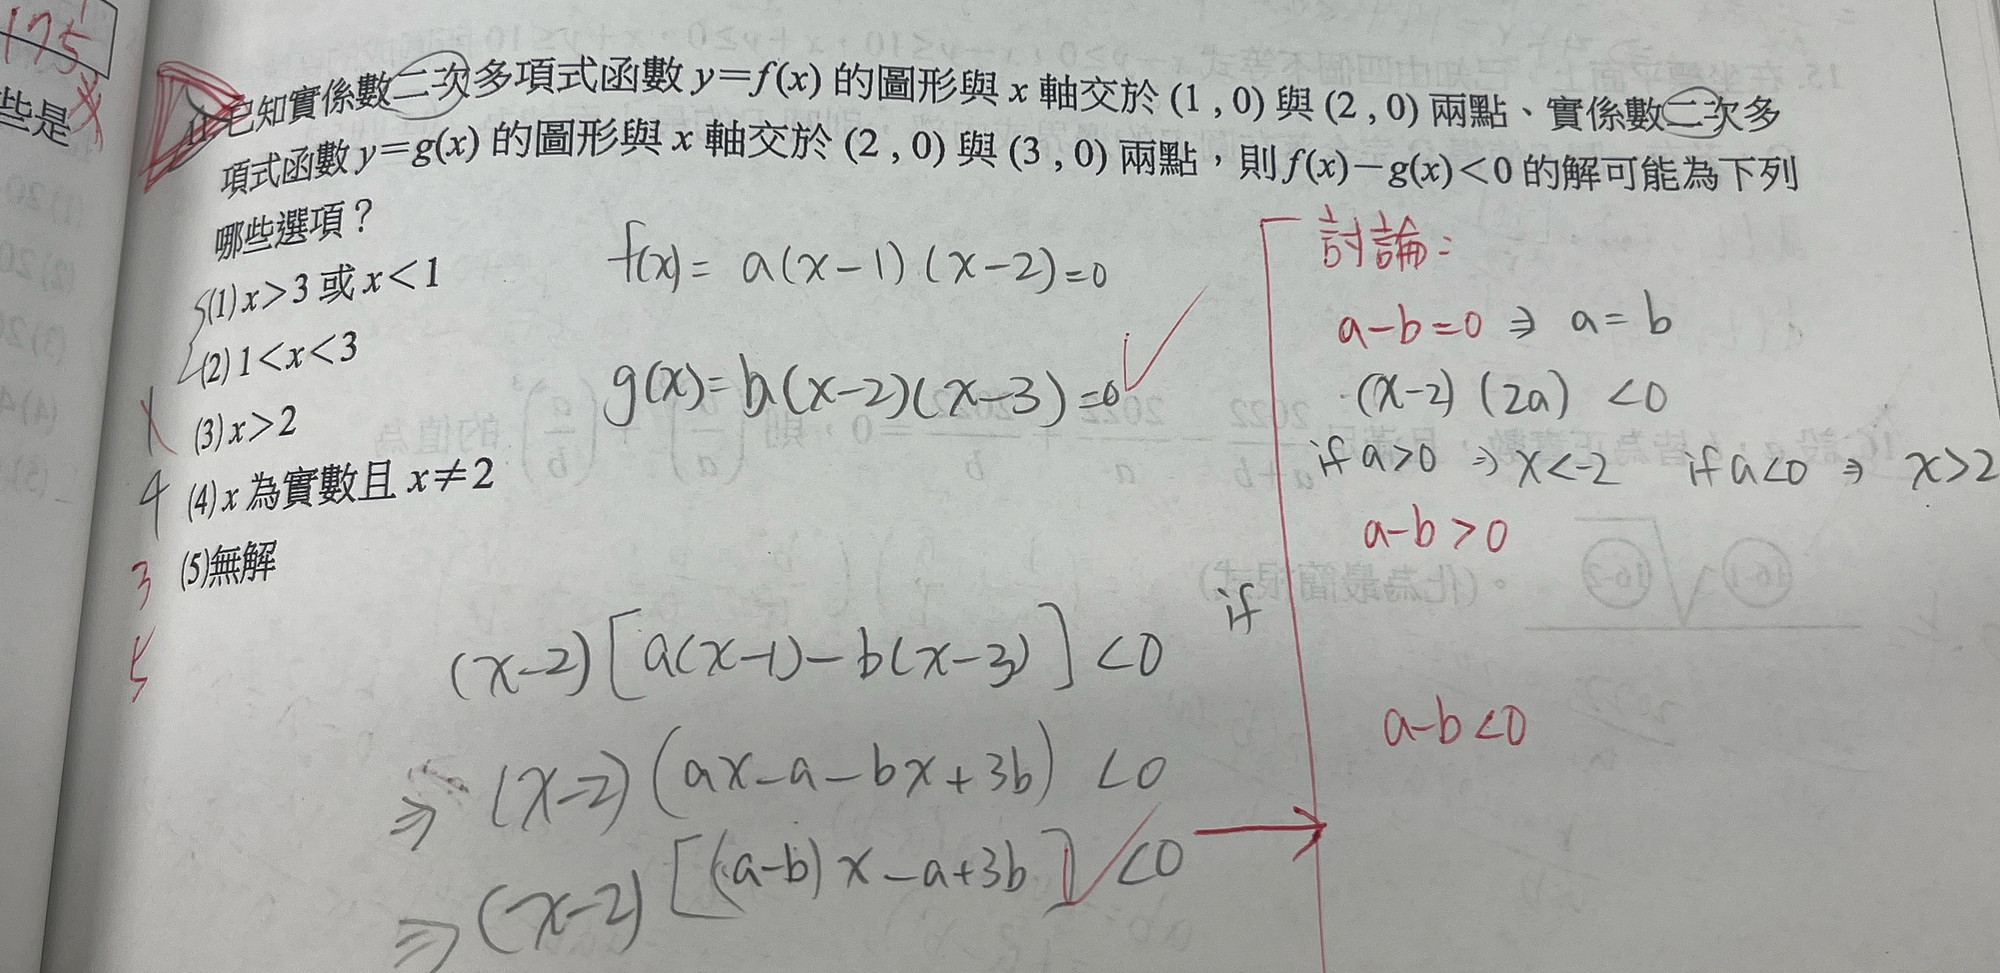 175
些是
11.已知實係數二次多項式函數 y=f(x) 的圖形與 x 軸交於 (1 , 0) 與 (2 , 0) 兩點、實係數二次多
項式函數 y=g(x) 的圖形與 x 軸交於 (2 , 0) 與 (3 , 0) 兩點，則 f(x)−g(x)<0 的解可能為下列
哪些選項？
(1) x>3 或 x<1
(2) 1<x<3
(3) x>2
4 (4) x 為實數且 x≠2
3 (5)無解
5
f(x)= a(x-1)(x-2)=0
g(x)= b(x-2)(x-3)=0
(x-2)[a(x-1)-b(x-3)]<0
⇒ (x-2)(ax-a-bx+3b)<0
⇒ (x-2)[(a-b)x-a+3b]<0
if
討論:
a-b=0 ⇒ a=b
(x-2)(2a) <0
if a>0 ⇒ x<-2 if a<0 ⇒ x>2
a-b>0
a-b<0